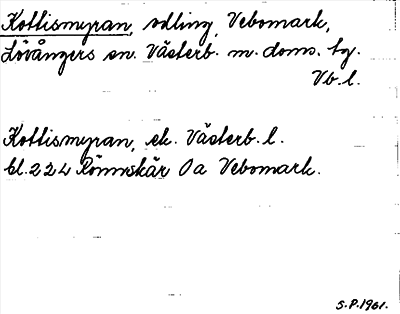 Kottismyran, odling, Vebomark,
Lövångers sn. Västerb. m. doms. tg.
Vb. l.
Kottismyran, ek. Västerb. l.
bl. 224 Rönnskär Oa Vebomark.
S.P. 1961.